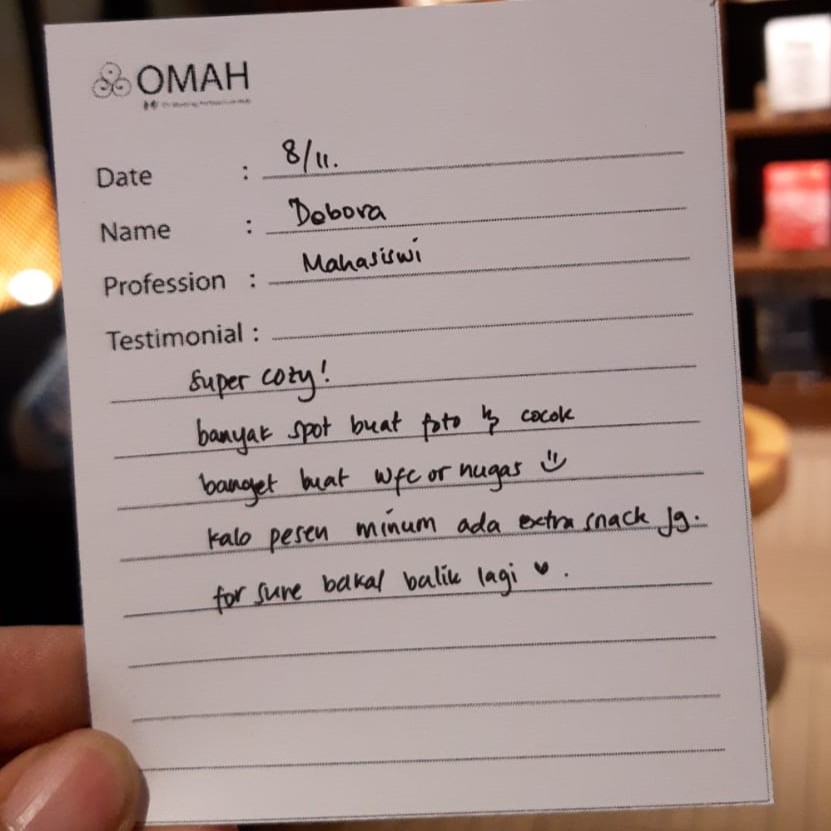 OMAH
Date : 8/11.
Name : Debora
Profession : Mahasiswi
Testimonial :
super cozy!
banyak spot buat foto & cocok
banget buat wfc or nugas
kalo pesen minum ada extra snack jg.
for sure bakal balik lagi ♥.